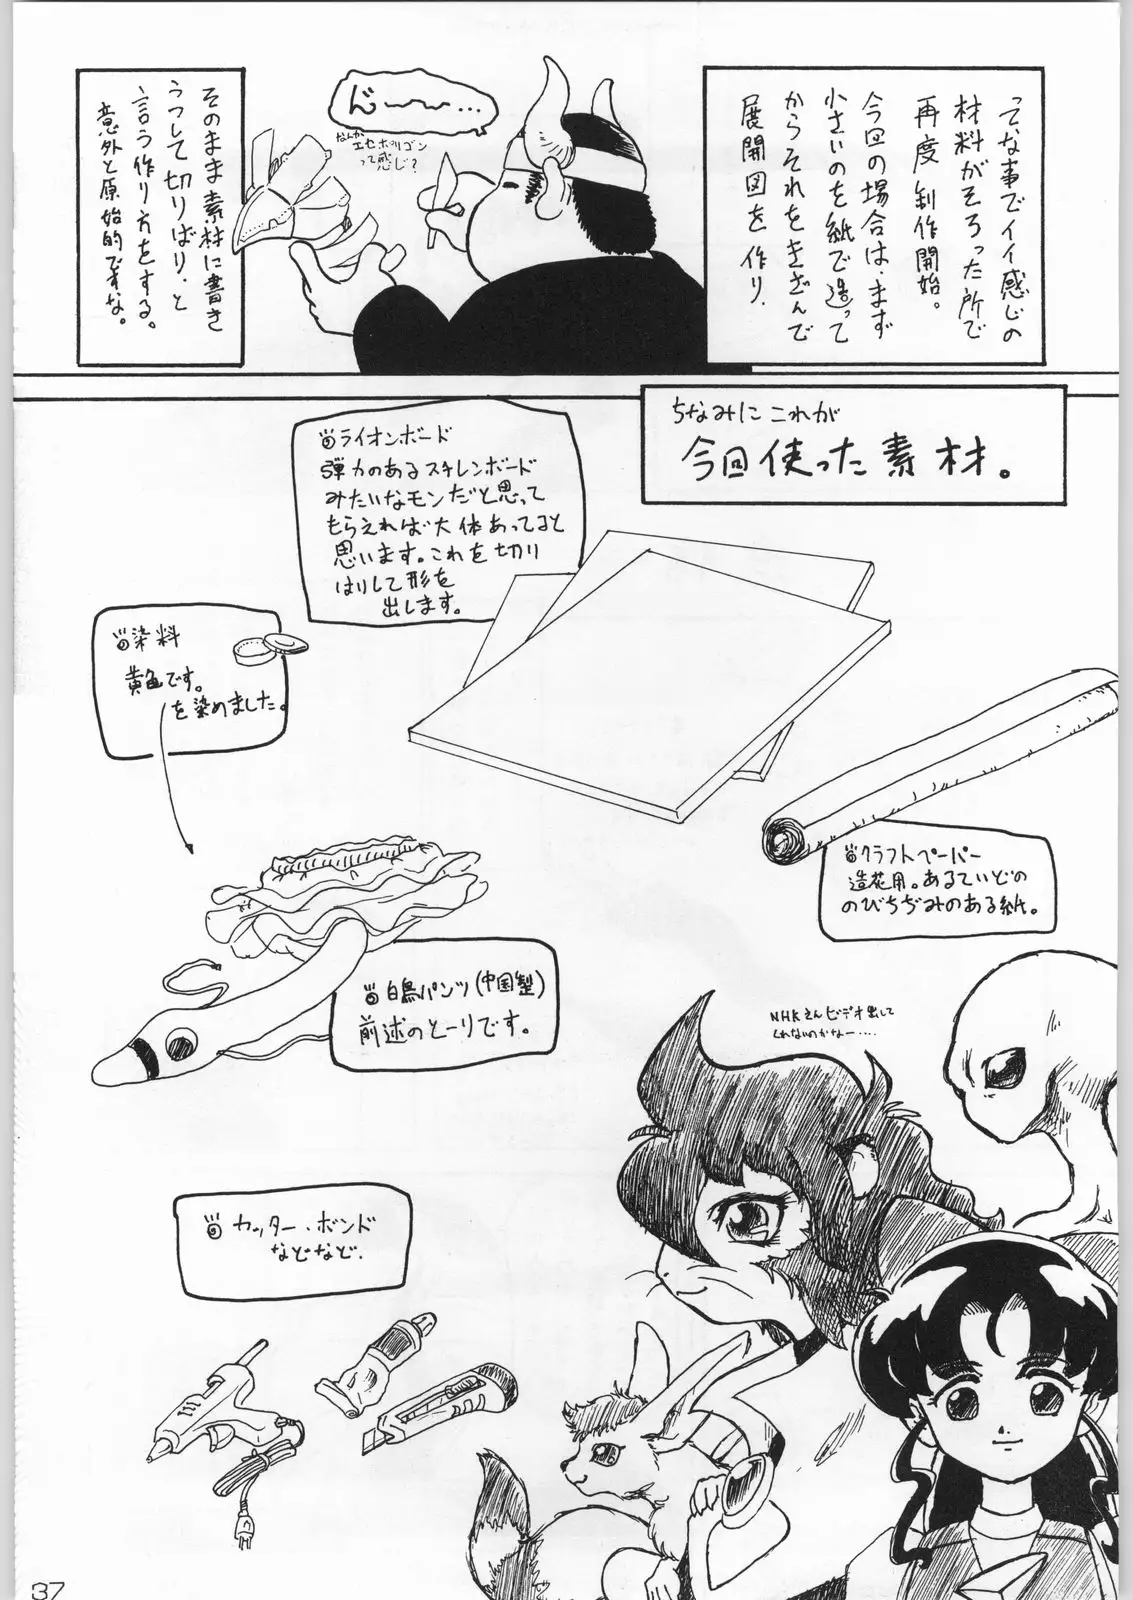 ってな事でイイ感じの
材料がそろった所で
再度制作開始。
今回の場合は、まず
小さいのを紙で造って
からそれをきざんで
展開図を作り、
ど〜〜…
なんか
エセポリゴン
って感じ?
そのまま素材に書き
うつして切りばり、と
言う作り方をする。
意外と原始的ですな。
ちなみにこれが
今回使った素材。
ライオンボード
弾力のあるスチレンボード
みたいなモンだと思って
もらえれば大体あってると
思います。これを切り
はりして形を
出します。
染料
黄色です。
を染めました。
クラフトペーパー
造花用。あるていどの
のびちぢみのある紙。
白鳥パンツ(中国製)
前述のとーりです。
NHKさんビデオ出して
くれないのかなー‥‥
カッター・ボンド
などなど.
37